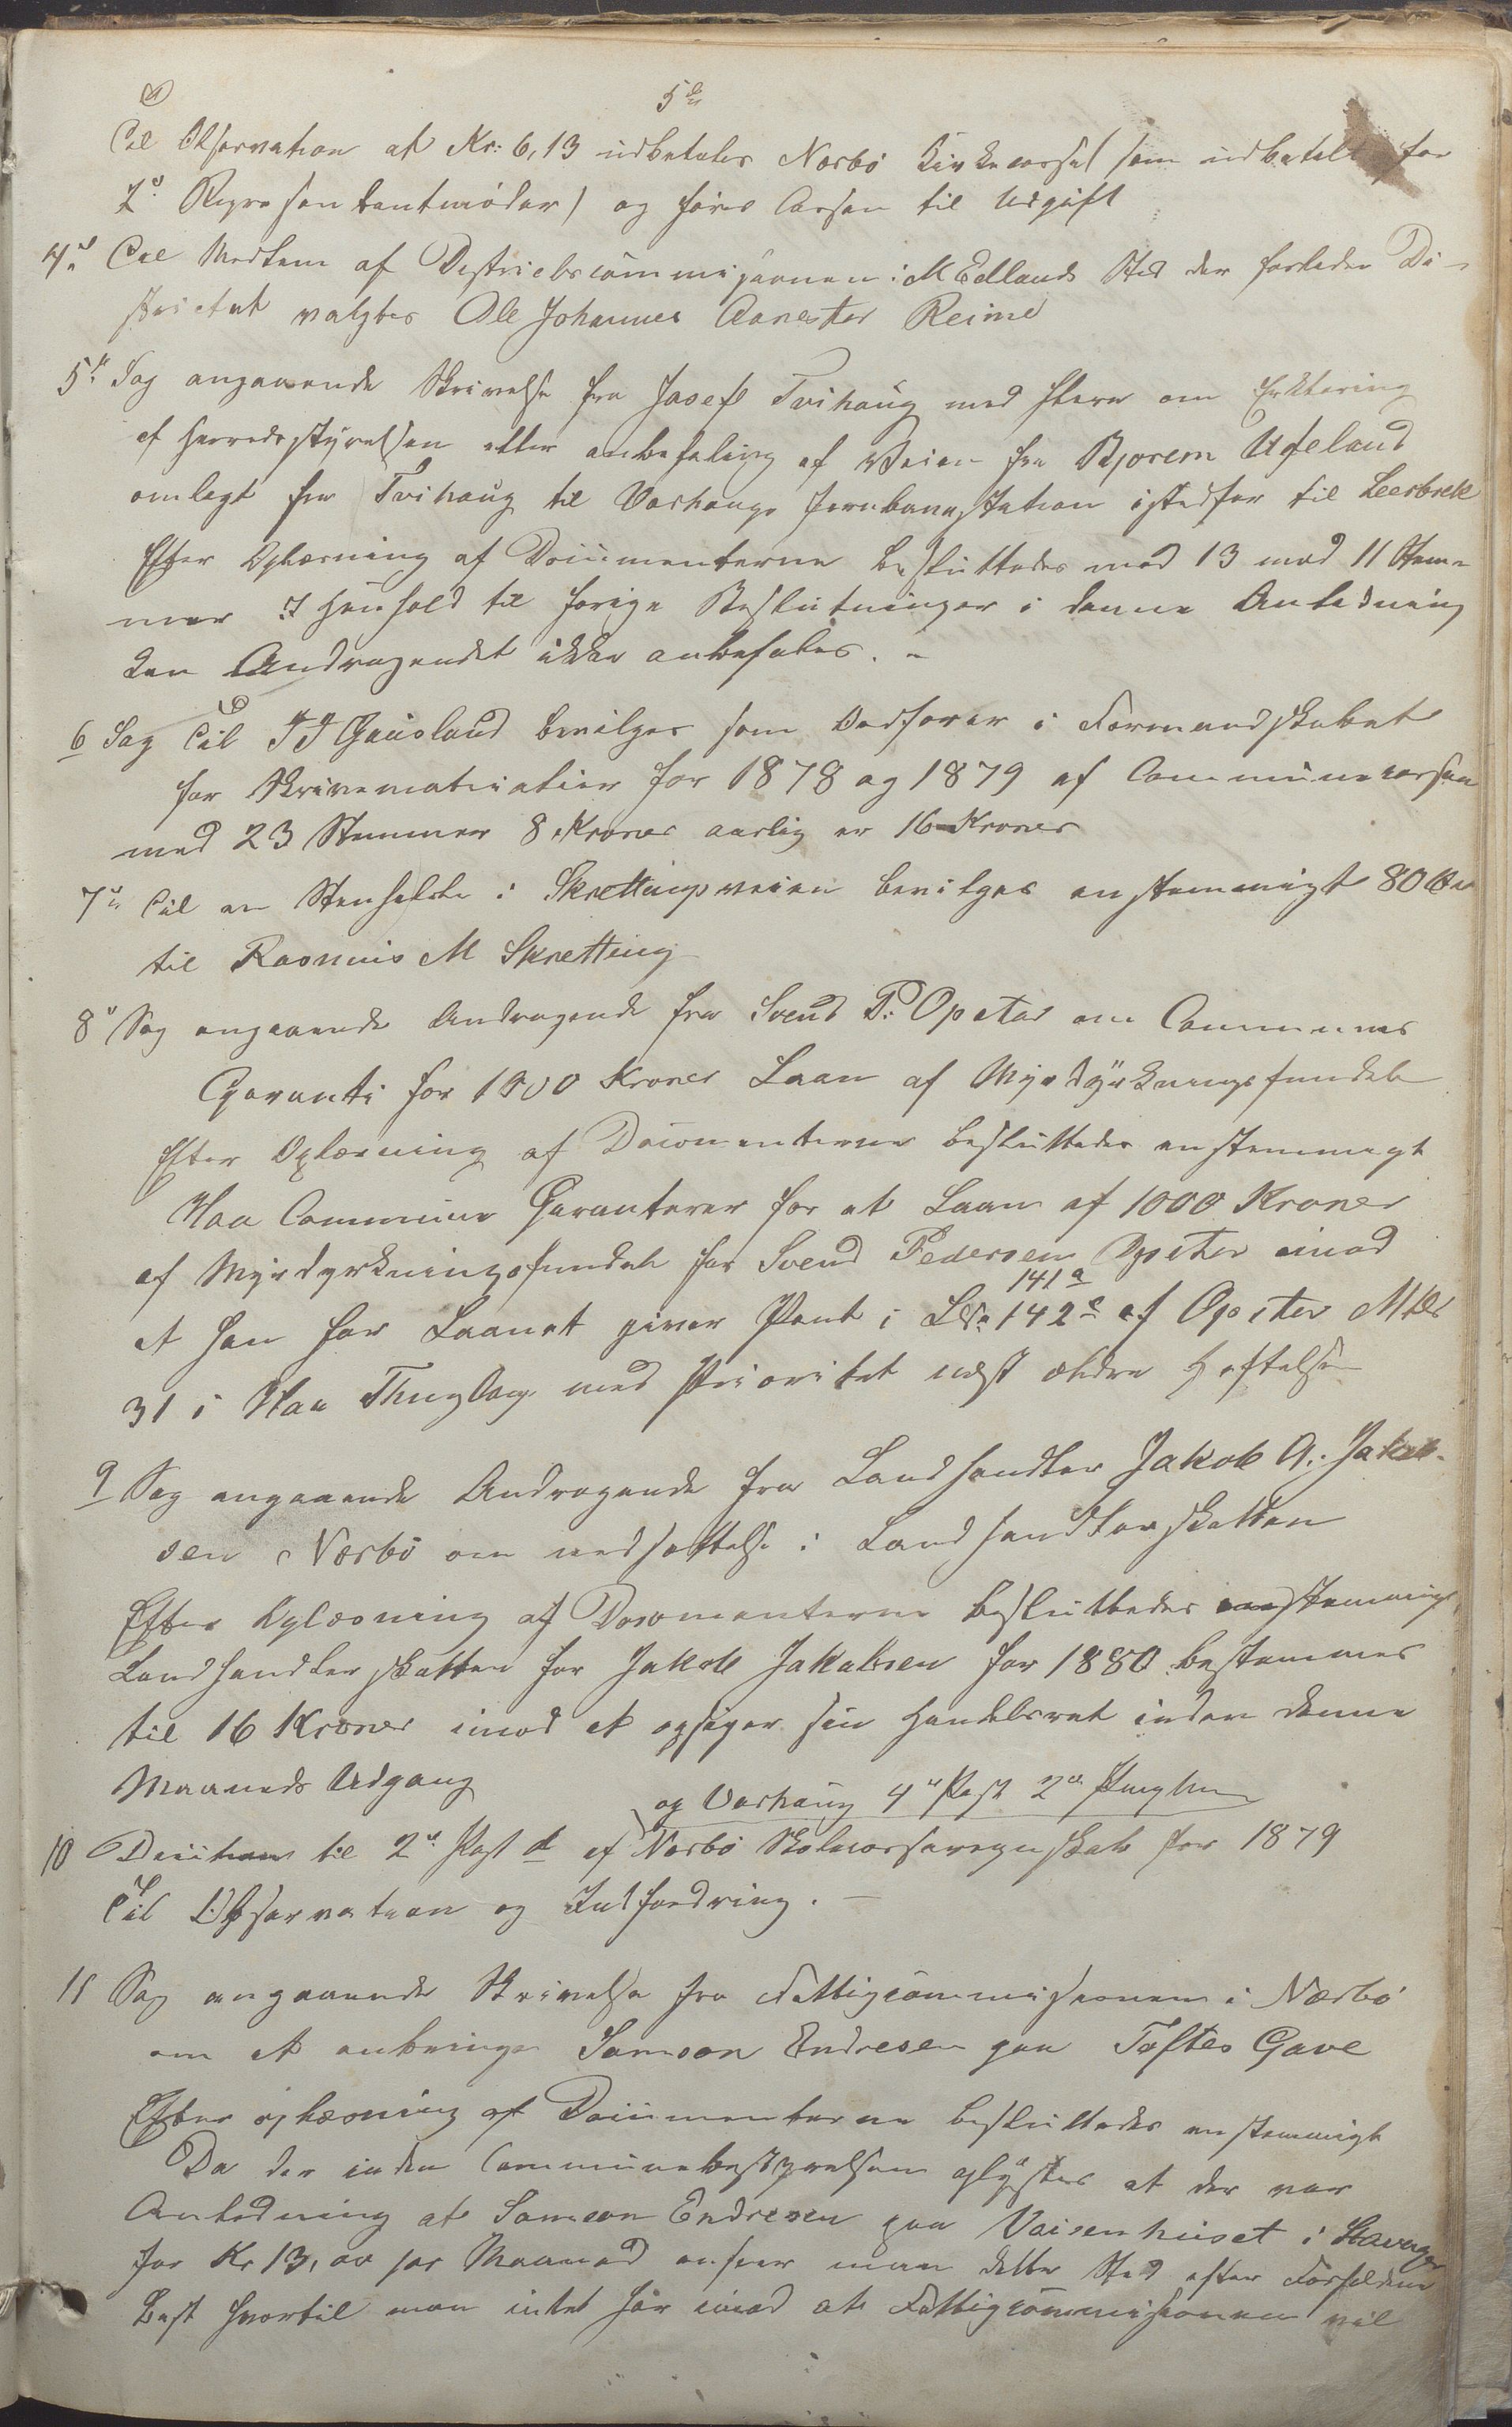 5de
Til Observation at Kr: 6,13 udbetales Nærbø Kirkecasse (som udbetalt for
2de Repræsentantmøder) og føres Cassen til Udgift
4de Til Medlem af Districtscommisionen i M Edlands Sted der forlader Di-
strictet valgtes Ole Johannes Aanestad Reime
5te Sag angaaende Skrivelse fra Josef Tvihaug med flere om Erklæring
af Herredsstyrelsen eller anbefaling af Veien fra Bjorem Ueland
omlagt fra Tvihaug til Varhaugs Jernbanestation istedfor til Leerbrek
Efter Oplæsning af Documenterne besluttedes med 13 mod 11 Stem-
mer I Henhold til forige Beslutninger i denne Anledning
kan Andragendet ikke anbefales. -
6 Sag Til T T Gausland bevilges som Ordfører i Formandskabet
for Skrivematrialier for 1878 og 1879 af Communecassen
med 23 Stemmer 8 Kroner aarlig er 16 Kroner
7de Til en Stenhelle i Skrettingsveien bevilges enstemmigt 80 Øre
til Rasmus M Skretting
8de Sag angaaende Andragende fra Svend P. Opstad om Communes
Garanti for 1000 Kroner Laan af Myrdyrkningsfondet
Efter Oplæsning af Documenterne besluttedes enstemmigt
Haa Commune Garanterer for et Laan af 1000 Kroner
af Myrdyrkningsfondet for Svend Pedersen Opstad imod
141a
at han for Laanet giver Pant i LNo 142e af Opstad MNo
31 i Haa Thinglag med Prioritet næst ældre Heftelser
9 Sag angaaende Andragende fra Landhandler Jakob A. Jakob-
sen Nærbø om nedsættelse i Landhandlerskatten
Efter Oplæsning af Documenterne besluttedes enstemmigt
Landhandlerskatten for Jakob Jakobsen for 1880 bestemmes
til 16 Kroner imod at opsiger sin Handelsret inden denne
Maaneds Udgang
og Varhaug 4de Post 2de
10 til 2de Post d af Nærbø Skolecasseregnskab for 1879
Til Observation og Indfordring. -
11 Sag angaaende Skrivelse fra Fattigcommisionen i Nærbø
om at anbringe Samson Endresen paa Toftes Gave
Efter oplæsning af Documenterne besluttedes enstemmigt
Da der inden Communebestyrelsen oplystes at der var
Anledning at Samson Endresen paa Vaisenhuset i Stavanger
for Kr 13, 00 per Maaned anseer man dette Sted efter Forholdene
Best hvortil man intet har imod at Fattigcommisionen vil